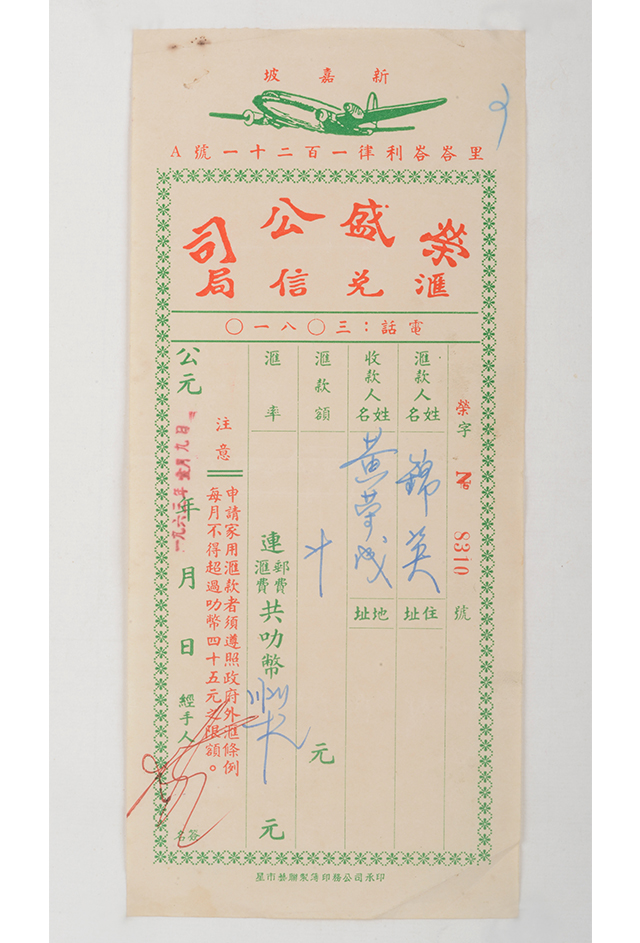 新嘉坡
里峇峇利律一百二十一號A
榮盛公司
滙兌信局
電話：三〇八一〇
榮字 № 8310 號
滙款人姓名 錦英 住址
收款人姓名 黃荣成 地址
滙款額 元
滙率 連郵費滙費共叻幣 元
注意
申請家用滙款者須遵照政府外滙條例
每月不得超過叻幣四十五元之限額。
公元 年 月 日 經手人 簽名
一九六三年壹月九日
星市藝聯製簿印務公司承印